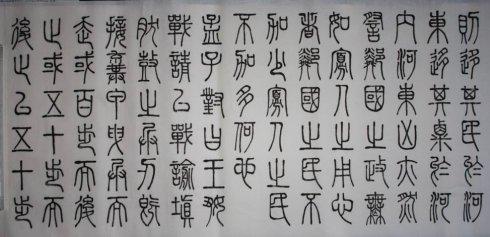 則移其民於河
東移其粟於河
內河東凶亦然
察鄰國之政無
如寡人之用心
者鄰國之民不
加少寡人之民
不加多何也
孟子對曰王好
戰請以戰喻填
然鼓之兵刃既
接棄甲曳兵而
走或百步而後
止或五十步而
後止以五十步